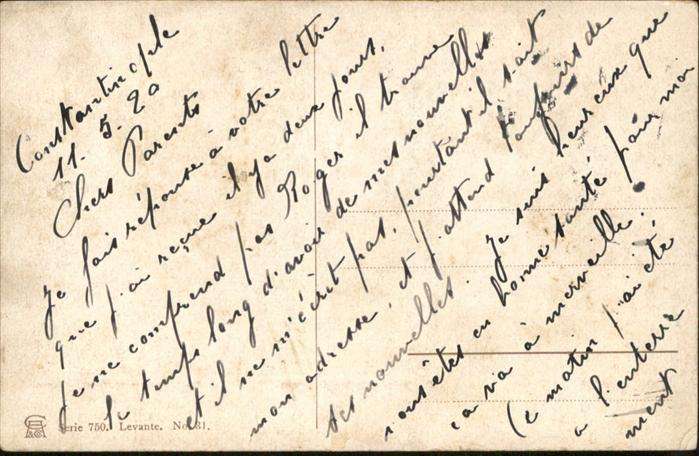 Constantinople
11. 5. 20
Chers Parents
Je fais réponse à votre lettre
que j'ai reçue il y a deux jours,
je ne comprend pas Roger il trouve
le temps long d'avoir de mes nouvelles
et il ne m'écrit pas, pourtant il sait
mon adresse, et j'attend toujours de
ses nouvelles. Je suis heureux que
vous êtes en bonne santé pour moi
ça va à merveille.
Ce matin j'ai été
a l'enterre
ment
Serie 750. Levante. No. 81.